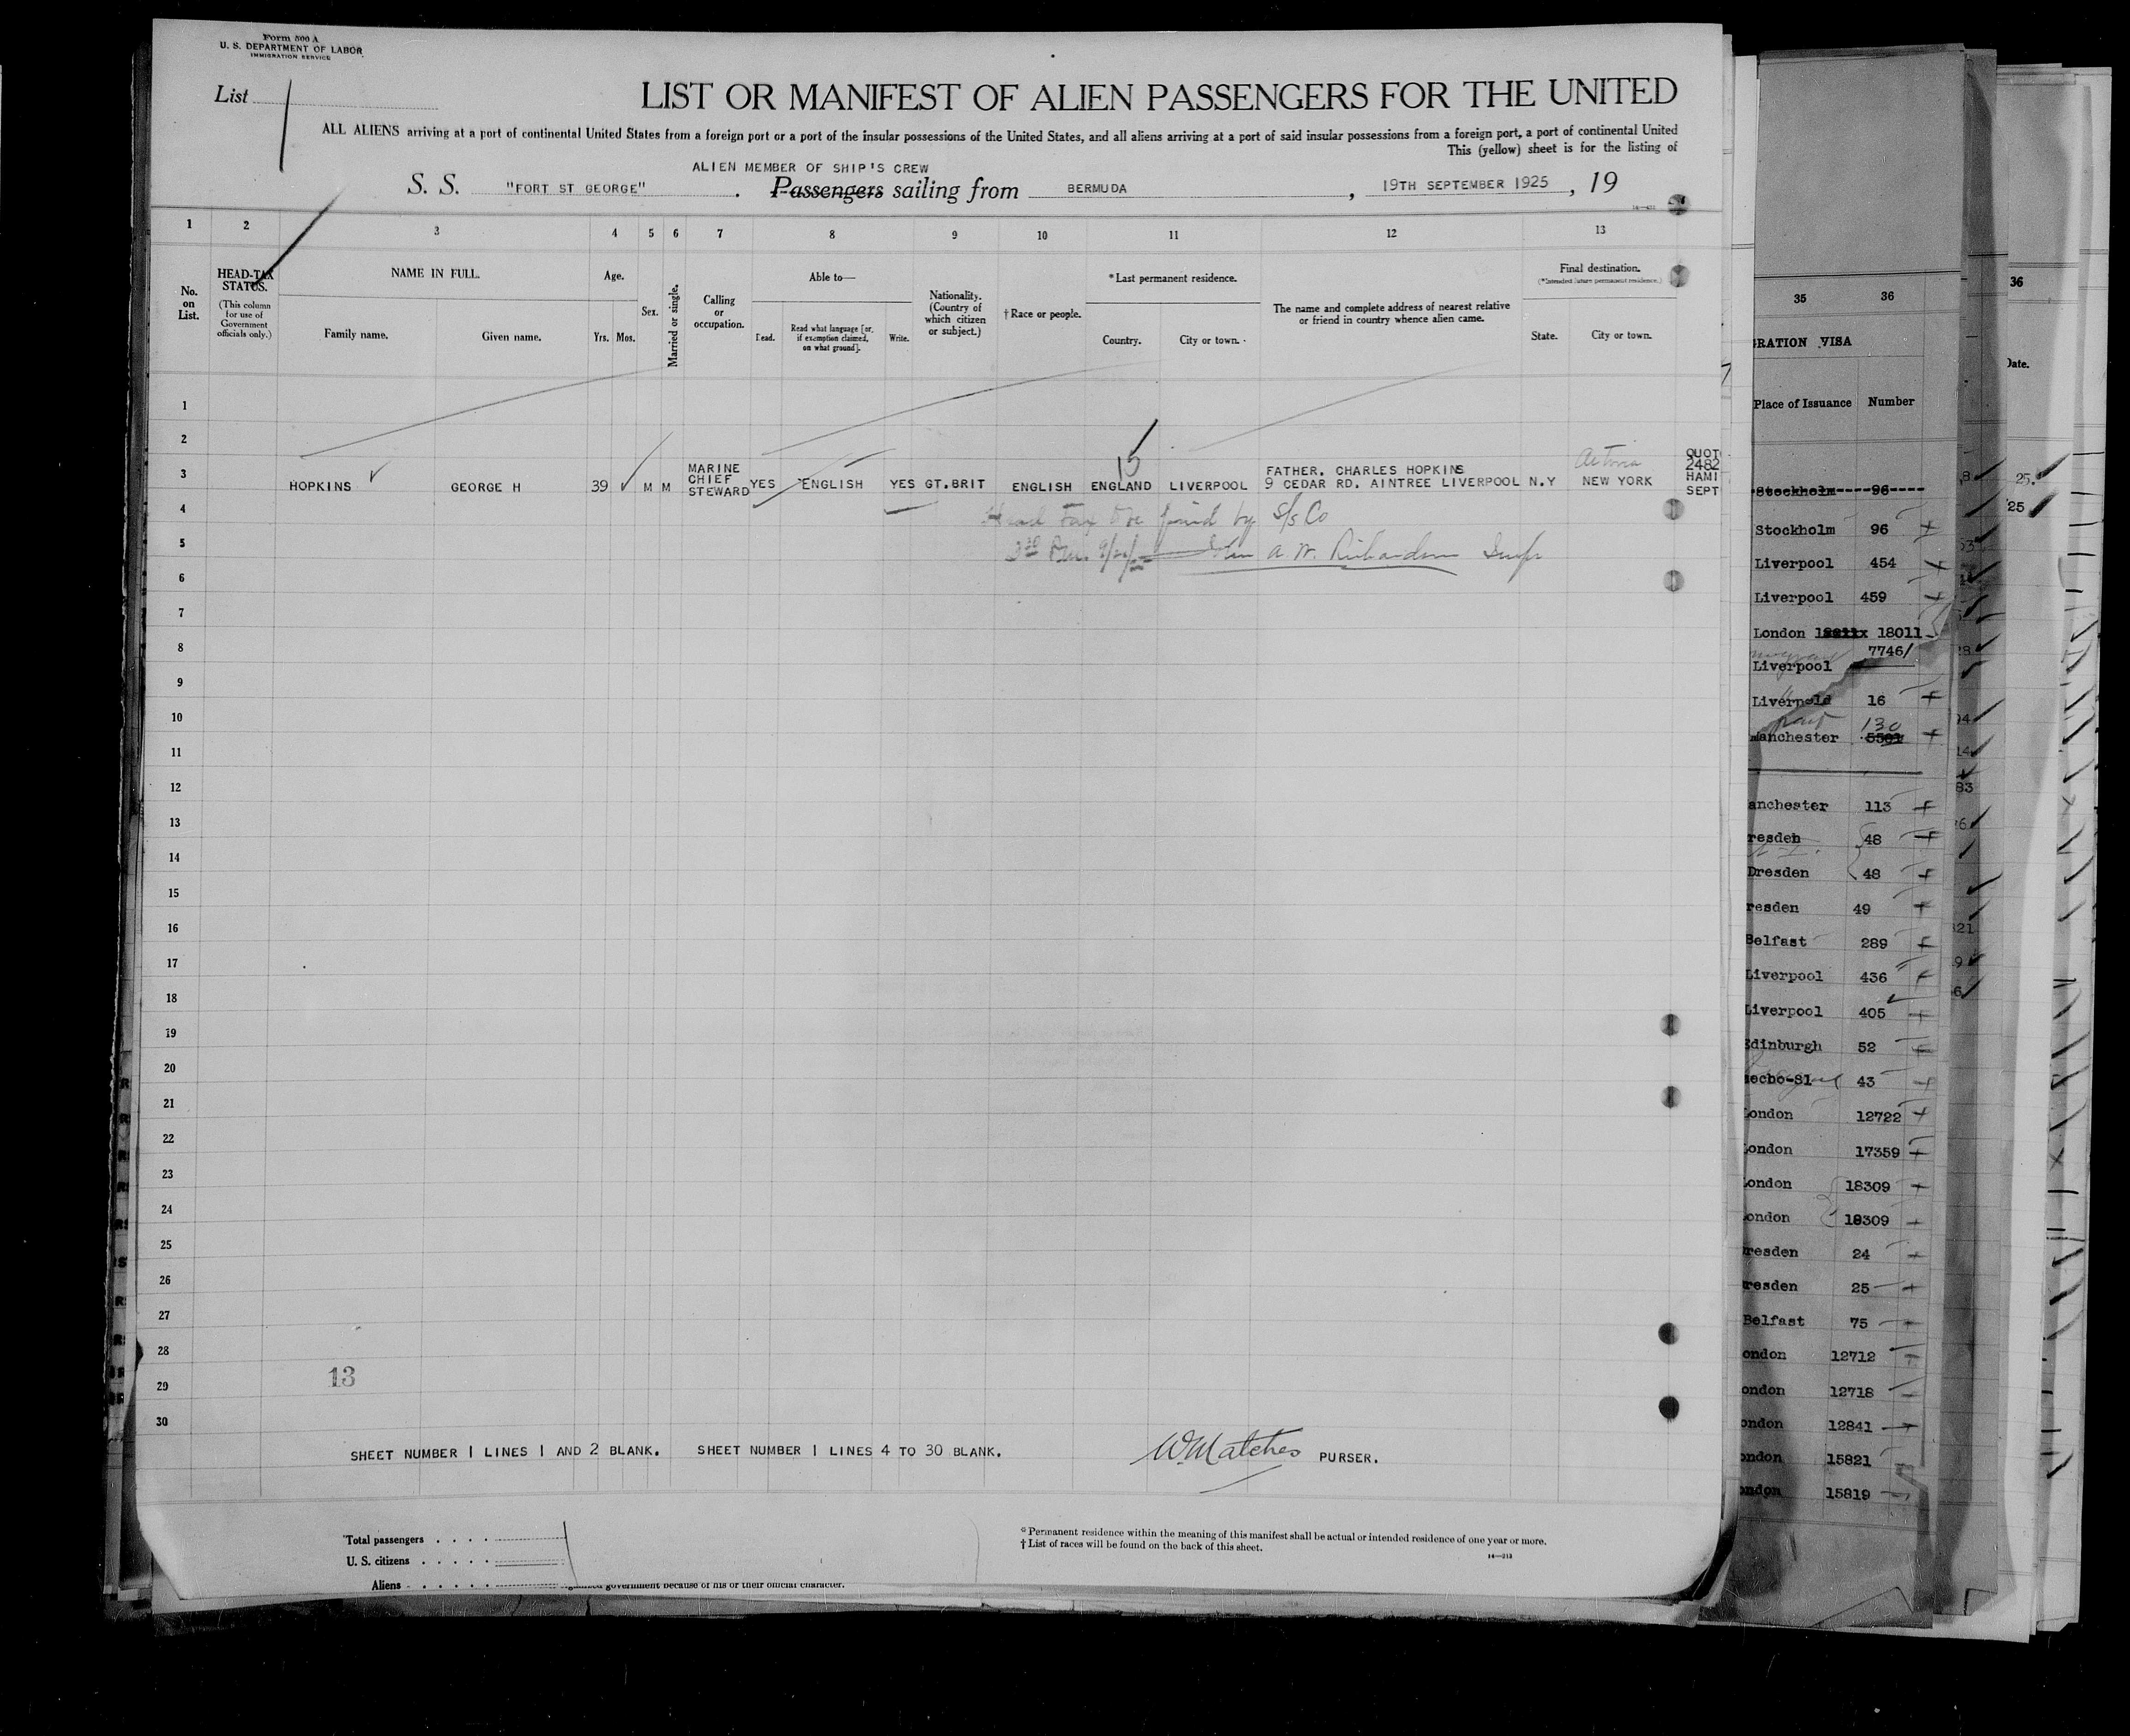 Form 500 A
U. S. DEPARTMENT OF LABOR
IMMIGRATION SERVICE
List
LIST OR MANIFEST OF ALIEN PASSENGERS FOR THE UNITED
ALL ALIENS arriving at a port of continental United States from a foreign port or a port of the insular possessions of the United States, and all aliens arriving at a port of said insular possessions from a foreign port, a port of continental United
This (yellow) sheet is for the listing of
ALIEN MEMBER OF SHIP'S CREW
S. S. "FORT ST GEORGE". Passengers sailing from BERMUDA, 19TH SEPTEMBER 1925, 19
1 2 3 4 5 6 7 8 9 10 11 12 13
No. on List.
HEAD-TAX STATUS.
(This column for use of Government officials only.)
NAME IN FULL.
Family name.
Given name.
Age.
Yrs. Mos.
Sex.
Married or single.
Calling or occupation.
Able to—
Read.
Read what language [or, if exemption claimed, on what ground].
Write.
Nationality. (Country of which citizen or subject.)
†Race or people.
*Last permanent residence.
Country.
City or town.
The name and complete address of nearest relative or friend in country whence alien came.
Final destination.
(*Intended future permanent residence.)
State.
City or town.
1
2
3 HOPKINS GEORGE H 39 M M MARINE CHIEF STEWARD YES ENGLISH YES GT.BRIT ENGLISH ENGLAND LIVERPOOL FATHER. CHARLES HOPKINS 9 CEDAR RD. AINTREE LIVERPOOL N.Y NEW YORK
Astoria
15
QUOT
2482
HAMI
SEPT
4
Head Tax to be paid by S/s Co
5
A. W. Richardson Insp
6
7
8
9
10
11
12
13
14
15
16
17
18
19
20
21
22
23
24
25
26
27
28
29
30
13
SHEET NUMBER 1 LINES 1 AND 2 BLANK. SHEET NUMBER 1 LINES 4 TO 30 BLANK.
W. Matches PURSER.
Total passengers
U. S. citizens
Aliens
government because of his or their official character.
* Permanent residence within the meaning of this manifest shall be actual or intended residence of one year or more.
† List of races will be found on the back of this sheet.
14—213
35 36
RATION VISA
Place of Issuance Number
Stockholm 96
Stockholm 96
Liverpool 454
Liverpool 459
London 18011
7746/
Liverpool
Liverpold 16
130
anchester
anchester 113
resden 48
Dresden 48
resden 49
Belfast 289
Liverpool 436
Liverpool 405
Edinburgh 52
echo-Sl 43
London 12722
London 17359
London 18309
ondon 18309
resden 24
resden 25
Belfast 75
ondon 12712
ondon 12718
ondon 12841
ondon 15821
ondon 15819
36
Date.
25
25